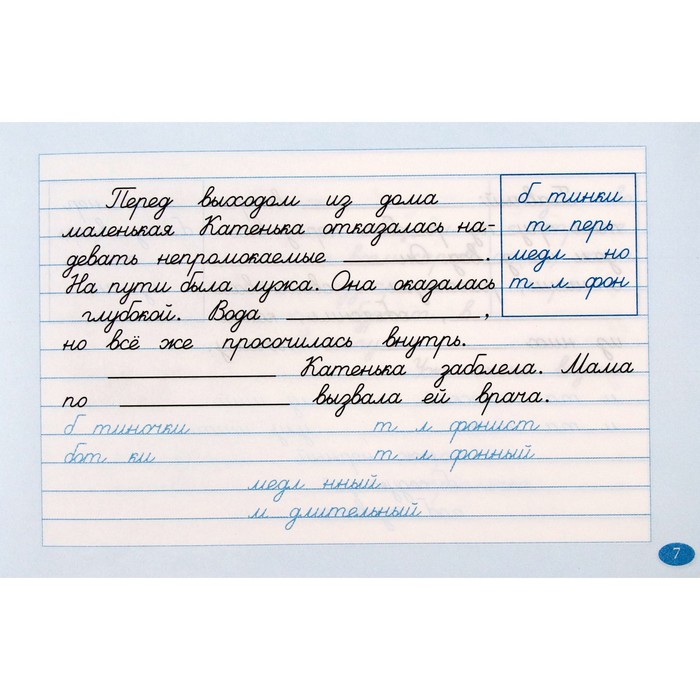 Перед выходом из дома
маленькая Катенька отказалась на-
девать непромокаемые ____________.
На пути была лужа. Она оказалась
глубокой. Вода ________________,
но всё же просочилась внутрь.
______________ Катенька заболела. Мама
по ______________ вызвала ей врача.
б тинки
т перь
медл но
т л фон
б тиночки т л фонист
бот ки т л фонный
медл нный
м длительный
7